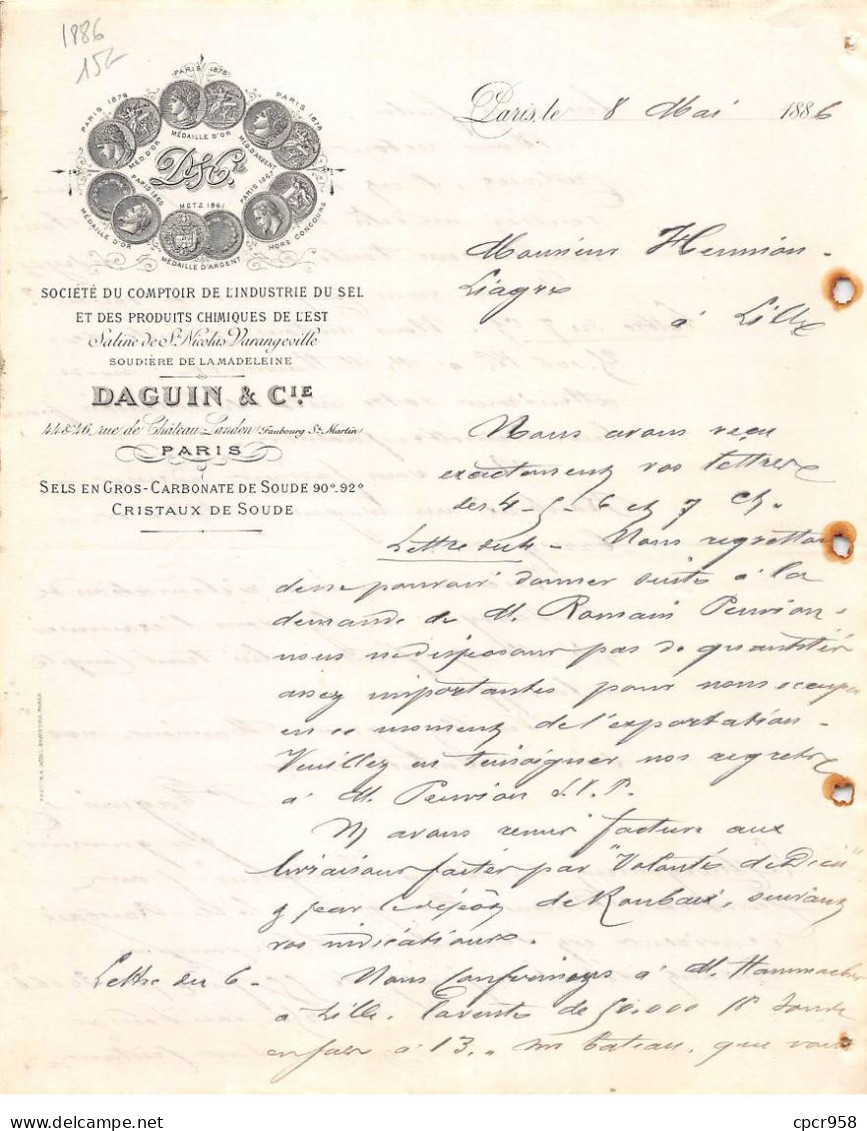 1886
152
PARIS 1878
PARIS 1878
PARIS 1878
MÉDAILLE D'OR
MÉD. D'OR
MÉD. D'ARGENT
D & Cie
PARIS 1860
METZ 1861
PARIS 1867
MÉDAILLE D'OR
MÉDAILLE D'ARGENT
HORS CONCOURS
Paris, le 8 Mai 1886
SOCIÉTÉ DU COMPTOIR DE L'INDUSTRIE DU SEL
ET DES PRODUITS CHIMIQUES DE L'EST
Saline de St Nicolas Varangeville
SOUDIÈRE DE LA MADELEINE
DAGUIN & CIE
44 & 46, rue de Château-Landon (Faubourg St Martin)
PARIS
SELS EN GROS - CARBONATE DE SOUDE 90° 92°
CRISTAUX DE SOUDE
Monsieur
à Lille
Nous avons reçu
exactement vos lettres
des 4 - 5 - 6 et 7 Ct.
Lettre du 4 - Nous regrettons
de ne pouvoir donner suite à la
demande de M. Romain Peuvion -
nous ne disposons pas de quantités
assez importantes pour nous occuper
en ce moment de l'exportation -
Veuillez en témoigner nos regrets
à M. Peuvion S.V.P.
avons remis facture aux
livraisons faites par "Volonté de Dieu"
de Roubaix, suivant
vos indications.
Lettre du 6 - Nous confirmons à M.
à Lille. la vente de 50.000
à 13. " un bateau, que vous
cpcr958